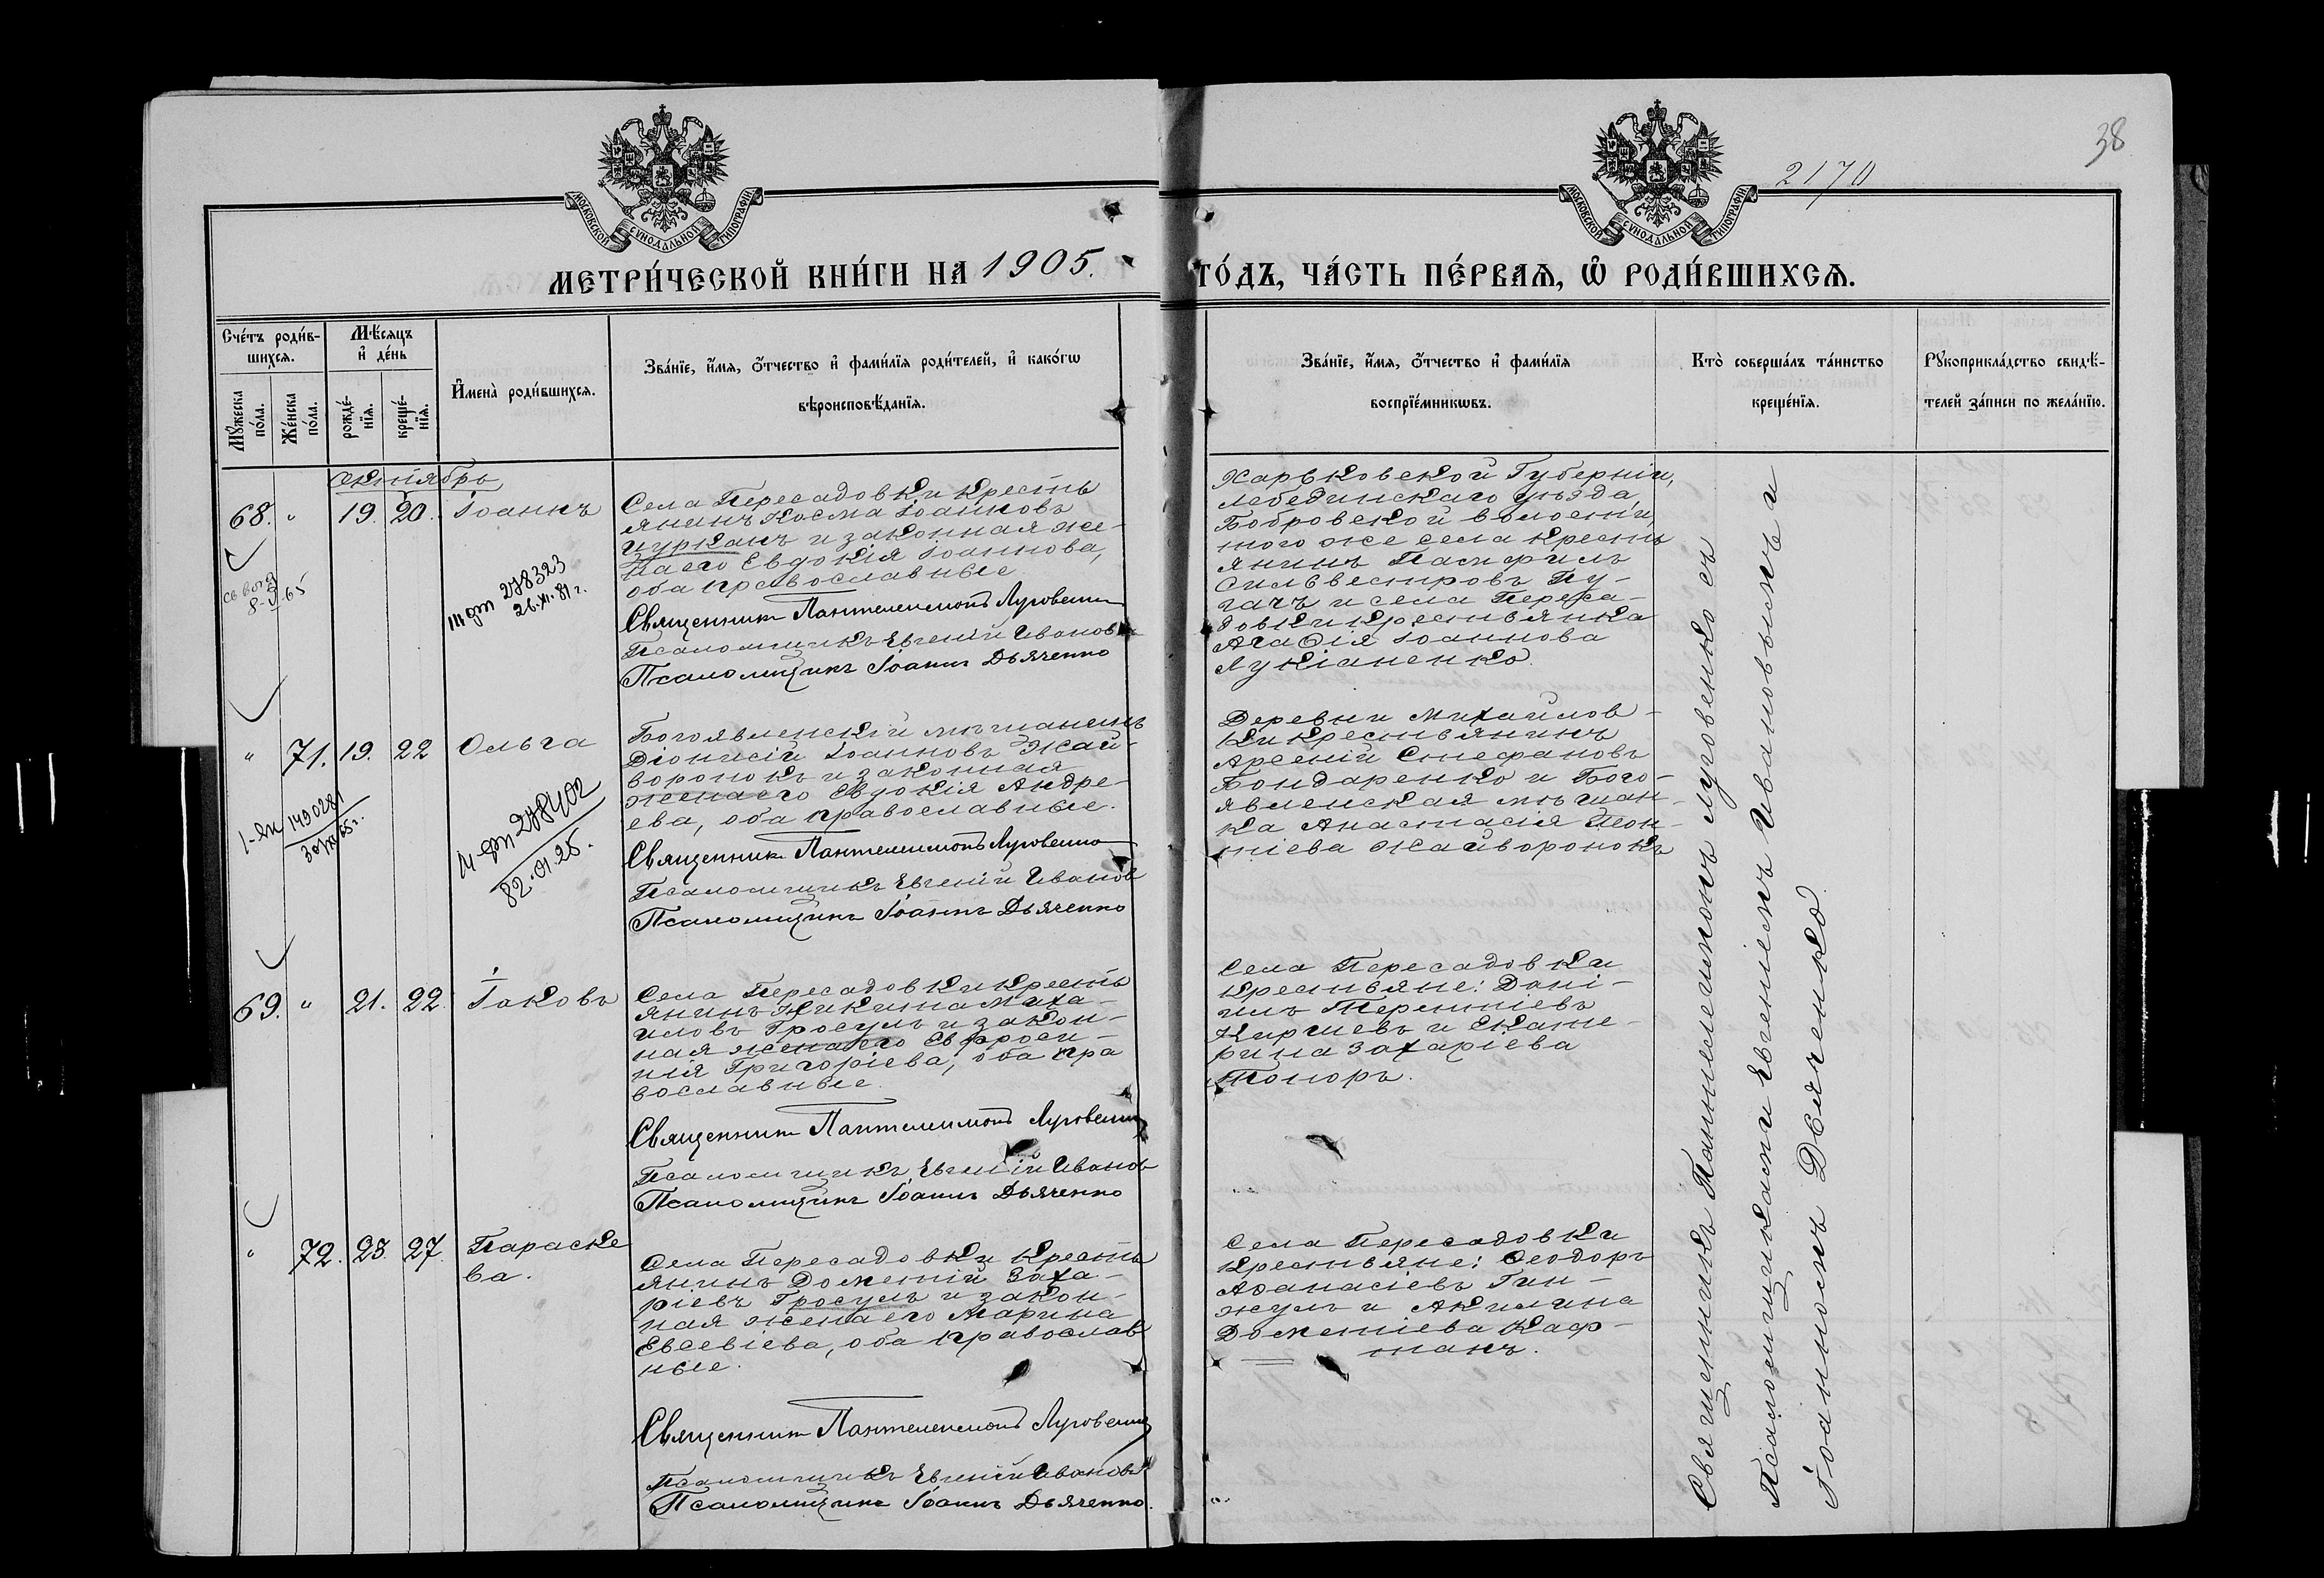 38
2170
МОСКОВСКОЙ СѴНОДАЛЬНОЙ ТИПОГРАФІИ
МОСКОВСКОЙ СѴНОДАЛЬНОЙ ТИПОГРАФІИ
МЕТРИ́ЧЕСКОЙ КНИ́ГИ НА 1905.
ГО́ДЪ, ЧА́СТЬ ПЕ́РВАЯ, Ѡ҆ РОДИ́ВШИХСЯ.
Сче́тъ роди́в-
шихся.
Мѣ́сяцъ
и҆ де́нь
Мꙋ́жеска
по́ла.
Же́нска
по́ла.
рожде́-
нїя.
креще́-
нїя.
И҆мена̀ роди́вшихся.
Зва́нїе, и҆́мя, ѻ҆́тчество и҆ фами́лїя роди́телей, и҆ како́гѡ
вѣроисповѣ́данїя.
Зва́нїе, и҆́мя, ѻ҆́тчество и҆ фами́лїя
воспрїе́мникѡвъ.
Кто̀ соверша́лъ та́инство
креще́нїя.
Рꙋкоприкла́дство свидѣ́-
телей за́писи по жела́нїю.
октябрь
68. " 19. 20. Іоаннъ
Села Пересадовки кресть
янинъ Косма Іоанновъ
Цурканъ и законная же-
на его Евдокія Іоаннова,
оба православные
Священник Пантелеимонъ Луговенко
Псаломщикъ Евгеній Ивановъ
Псаломщикъ Іоаннъ Дьяченко
Харьковской Губерніи,
Лебединскаго уѣзда,
Бобровской волости,
того же села кресть
янинъ Памфилъ
Сильвестровъ Пу-
гачъ и села Переса-
довки крестьянка
Агафія Іоаннова
Лукіаненко.
278323
26.XI.81 г.
" 71. 19. 22 Ольга
Богоявленскій мѣщанинъ
Діонисій Іоанновъ Жай-
воронокъ и законная
жена его Евдокія Андре-
ева, оба православные.
Священник Пантелеимонъ Луговенко
Псаломщикъ Евгеній Ивановъ
Псаломщикъ Іоаннъ Дьяченко
Деревни Михайлов-
ки крестьянинъ
Арсеній Стефановъ
Бондаренко и Бого-
явленская мѣщан-
ка Анастасія Леон-
тіева Жайворонокъ
278402
82.01.25.
69. " 21. 22. Іаковъ
Села Пересадовки кресть
янинъ Никита Миха-
иловъ Гросулъ и закон-
ная жена его Евфроси-
нія Григоріева, оба пра
вославные.
Священник Пантелеимонъ Луговенко
Псаломщикъ Евгеній Ивановъ
Псаломщикъ Іоаннъ Дьяченко
Села Пересадовки
крестьяне: Дані-
илъ Терентіевъ
Киргіевъ и Екате-
рина Захаріева
Топоръ.
" 72. 23. 27. Параске
ва.
Села Пересадовки кресть
янинъ Дометій Заха-
ріевъ Гросулъ и закон-
ная жена его Марина
Евсевіева, оба православ
ные.
Священник Пантелеимонъ Луговенко
Псаломщикъ Евгеній Ивановъ
Псаломщикъ Іоаннъ Дьяченко.
Села Пересадовки
крестьяне: Ѳеодоръ
Аѳанасіевъ Гин-
жулъ и Акилина
Дометіева Каф-
танъ.
Священникъ Пантелеимонъ Луговенко съ
Псаломщиками Евгеніемъ Ивановымъ и
Іоанномъ Дьяченко.